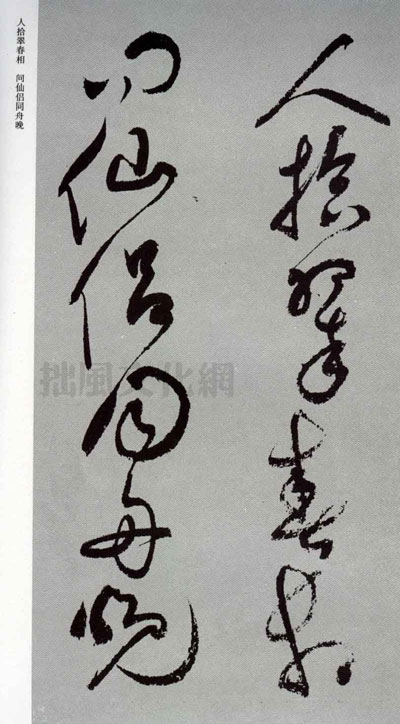 人拾翠春相
问仙侣同舟晚
人拾翠春相 问仙侣同舟晚
拙風文化網